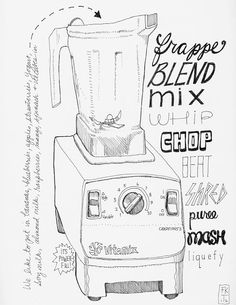 We like to put in bananas, blueberries, apples, strawberries, yogurt,
soy milk, almond milk, raspberries, mango, spinach +
frappe
BLEND
mix
WHIP
CHOP
BEAT
SHRED
puree
MASH
liquefy
Vitamix
IT'S
POWER-
FUL!